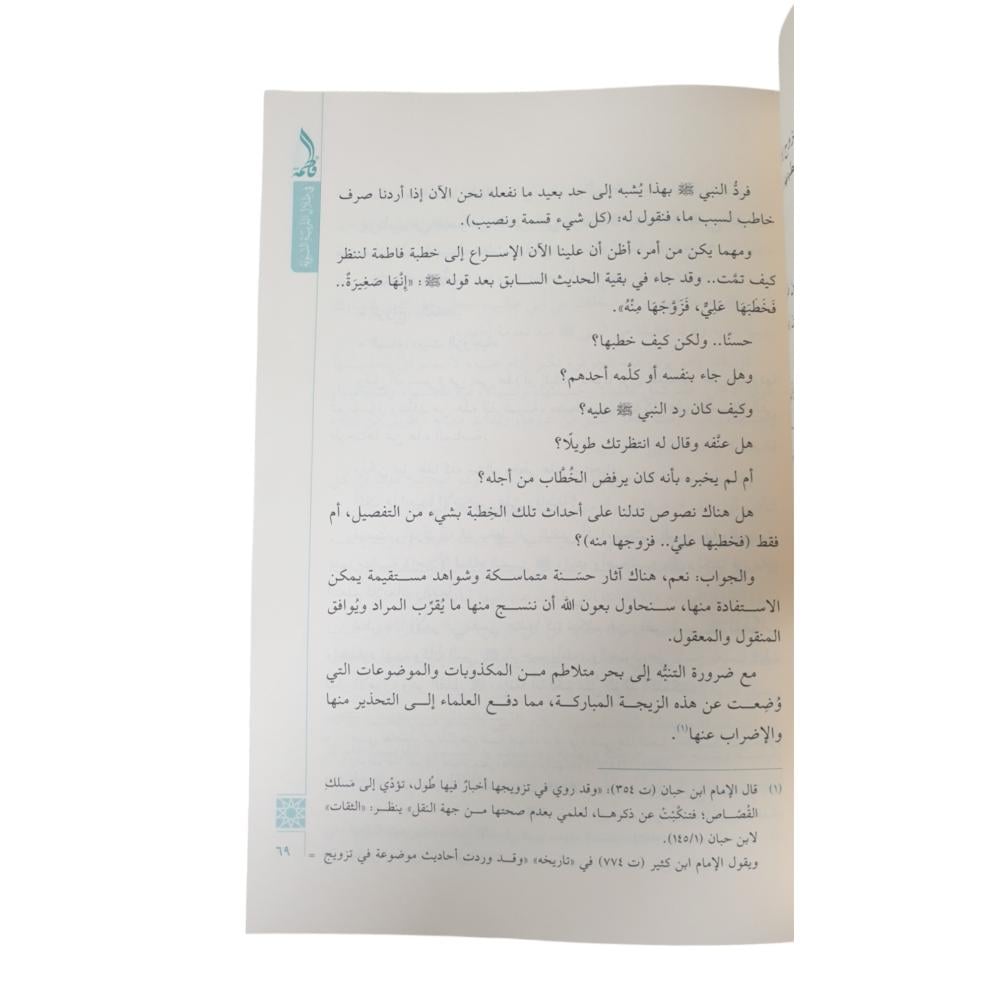 فاطمة
في ظلال التربية النبوية
فردُّ النبي ﷺ بهذا يُشبه إلى حد بعيد ما نفعله نحن الآن إذا أردنا صرف
خاطب لسبب ما، فنقول له: (كل شيء قسمة ونصيب).
ومهما يكن من أمر، أظن أن علينا الآن الإسراع إلى خطبة فاطمة لننظر
كيف تمَّت.. وقد جاء في بقية الحديث السابق بعد قوله ﷺ: «إِنَّهَا صَغِيرَةٌ..
فَخَطَبَهَا عَلِيٌّ، فَزَوَّجَهَا مِنْهُ».
حسنًا.. ولكن كيف خطبها؟
وهل جاء بنفسه أو كلَّمه أحدهم؟
وكيف كان رد النبي ﷺ عليه؟
هل عنَّفه وقال له انتظرتك طويلًا؟
أم لم يخبره بأنه كان يرفض الخُطَّاب من أجله؟
هل هناك نصوص تدلنا على أحداث تلك الخِطبة بشيء من التفصيل، أم
فقط (فخطبها عليٌّ.. فزوجها منه)؟
والجواب: نعم، هناك آثار حسَنة متماسكة وشواهد مستقيمة يمكن
الاستفادة منها، سنحاول بعون الله أن ننسج منها ما يُقرِّب المراد ويُوافق
المنقول والمعقول.
مع ضرورة التنبُّه إلى بحر متلاطم من المكذوبات والموضوعات التي
وُضِعت عن هذه الزيجة المباركة، مما دفع العلماء إلى التحذير منها
والإضراب عنها(١).
(١) قال الإمام ابن حبان (ت ٣٥٤): «وقد روي في تزويجها أخبارٌ فيها طُول، تؤدّي إلى مَسلكِ
القُصَّاص؛ فتنكَّبْتُ عن ذكرها، لعلمي بعدم صحتها من جهة النقل» ينظر: «الثقات»
لابن حبان (١٤٥/١).
ويقول الإمام ابن كثير (ت ٧٧٤) في «تاريخه» «وقد وردت أحاديث موضوعة في تزويج =
٦٩